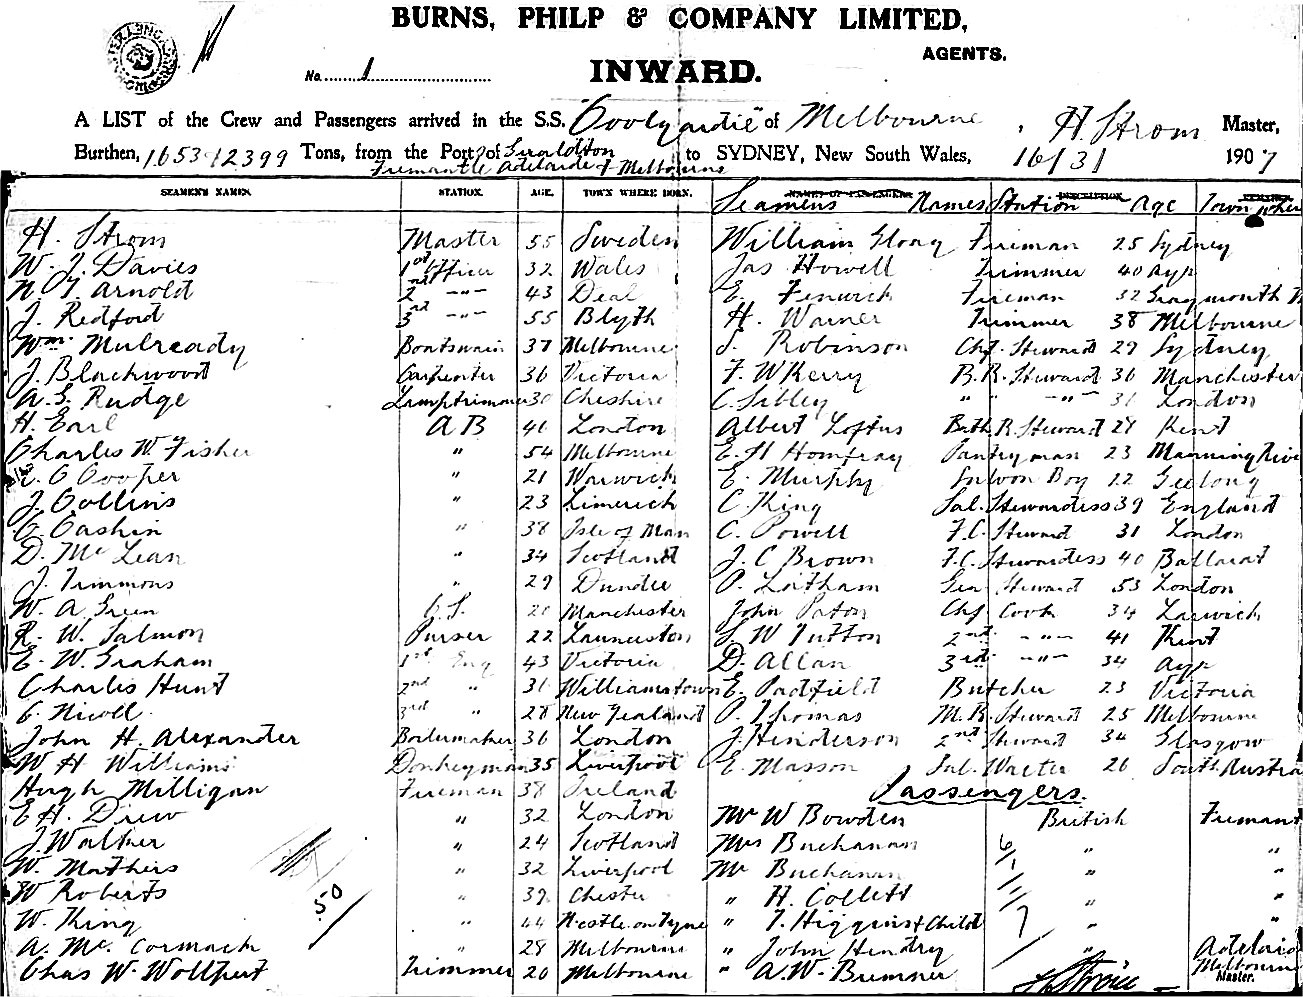 BURNS, PHILP & COMPANY LIMITED,
AGENTS.
No. 1
INWARD.
A LIST of the Crew and Passengers arrived in the S.S. "Coolgardie" of Melbourne, H. Strom Master,
Burthen, 1653/2399 Tons, from the Port of Geraldton Fremantle Adelaide & Melbourne to SYDNEY, New South Wales, 16/3/ 1907
SEAMEN'S NAMES. STATION. AGE. TOWN WHERE BORN. Seamens Names Station Age Town where
H. Strom Master 55 Sweden William Gloag Fireman 25 Sydney
W. J. Davies 1st Officer 32 Wales Jas Howell Trimmer 40 Ayr
W. T. Arnold 2nd -"- 43 Deal E. Fenwick Fireman 32
J. Redford 3rd -"- 55 Blyth H. Warner Trimmer 38 Melbourne
Wm. Mulready Boatswain 37 Melbourne J. Robinson Chf. Steward 29 Sydney
J. Blackwood Carpenter 36 Victoria F. W Kerry B.R. Steward 36 Manchester
A. S. Rudge Lamptrimmer 30 Cheshire C. Sibley " " -"- 31 London
H. Earl AB 41 London Albert Loftus Bath R. Steward 28 Kent
Charles W. Fisher " 54 Melbourne E. H Homfray Pantryman 23 Manning Rive
C Cooper " 21 Warwick E. Murphy Saloon Boy 22 Geelong
J. Collins " 23 Limerick C. King Sal. Stewardess 39 England
C Cashin " 38 Isle of Man C. Powell F.C. Steward 31 London
D. Mc Lean " 34 Scotland J. C Brown F.C. Stewardess 40 Ballarat
J. Timmons " 29 Dundee O. Latham Gen Steward 53 London
W. A Green O.S. 21 Manchester John Paton Chf Cook 34 Lerwick
R. W. Salmon Purser 22 Launceston S. W Tutton 2nd -"- 41 Kent
E. W. Graham 1st Eng 43 Victoria D. Allan 3rd -"- 34 Ayr
Charles Hunt 2nd " 31 Williamstown E. Padfield Butcher 23 Victoria
C. Nicoll 3rd " 28 New Zealand P. Thomas M.R. Steward 25 Melbourne
John H. Alexander Boilermaker 36 London J. Henderson 2nd Steward 34 Glasgow
W H Williams Donkeyman 35 Liverpool E. Masson Sal. Waiter 26 South Austra
Hugh Milligan Fireman 38 Ireland Passengers.
E H. Drew " 32 London Mr W Bowden British Fremant
J. Walker " 24 Scotland Mrs Buchanan " "
W. Mathers " 32 Liverpool Mr Buchanan " "
W Roberts " 39 Chester " H. Collett " "
50
W. King " 44 N'castle on Tyne " T. Higgins & Child " "
A. Mc. Cormack " 28 Melbourne " John Hendry " Adelaid
Chas W. Wollfert Trimmer 20 Melbourne " A. W. Bremner Melbourne
H Strom Master.